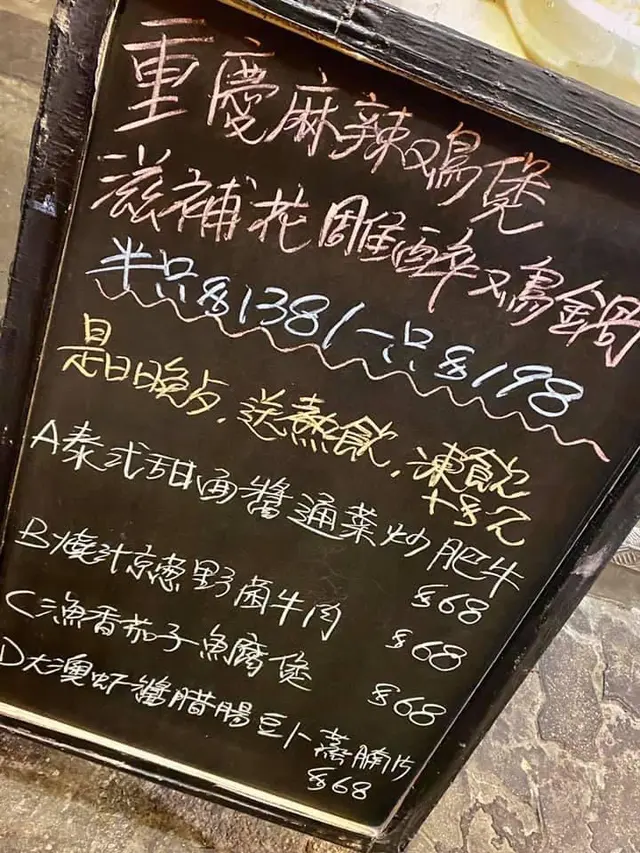 重慶麻辣鸡煲
滋補花雕醉鸡鍋
半只$138/一只$198
是日晚点,送熱飲,凍飲
A泰式甜面醬通菜炒肥牛
$68
B燒汁京葱野菌牛肉 $68
C漁香茄子魚腐煲 $68
D大澳虾醬腊腸豆卜蒸腩片
$68